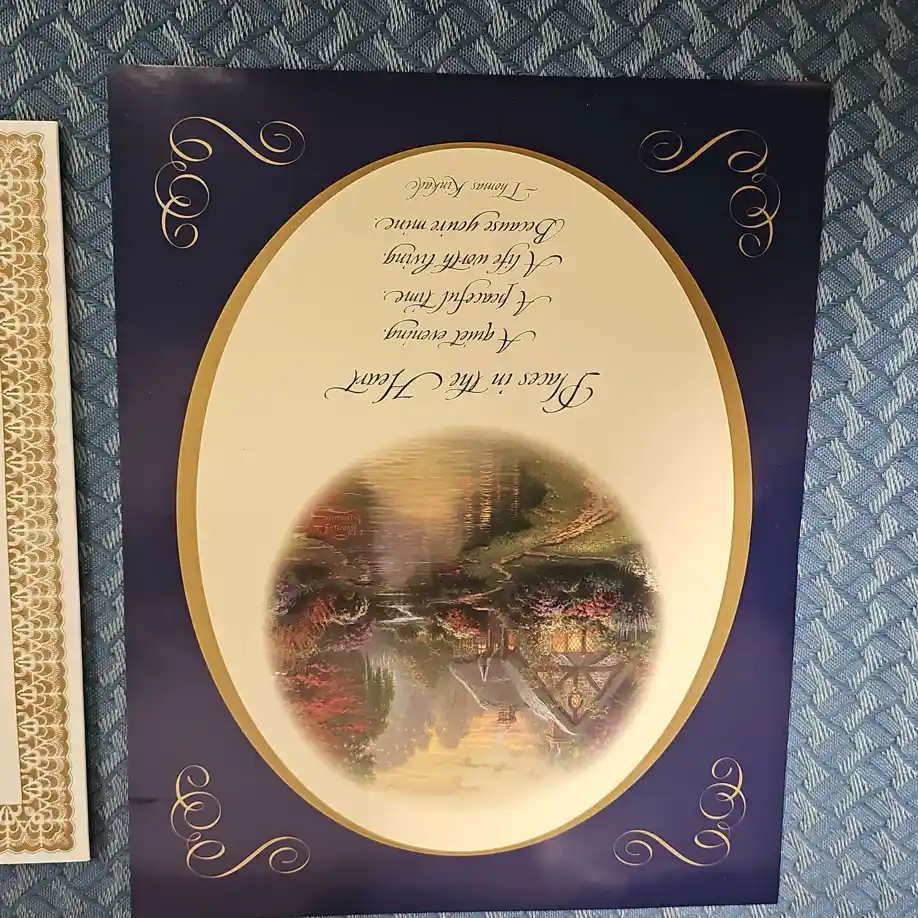 Places in the Heart
A quiet evening,
A peaceful time,
A life worth living
Because you're mine.
-Thomas Kinkade